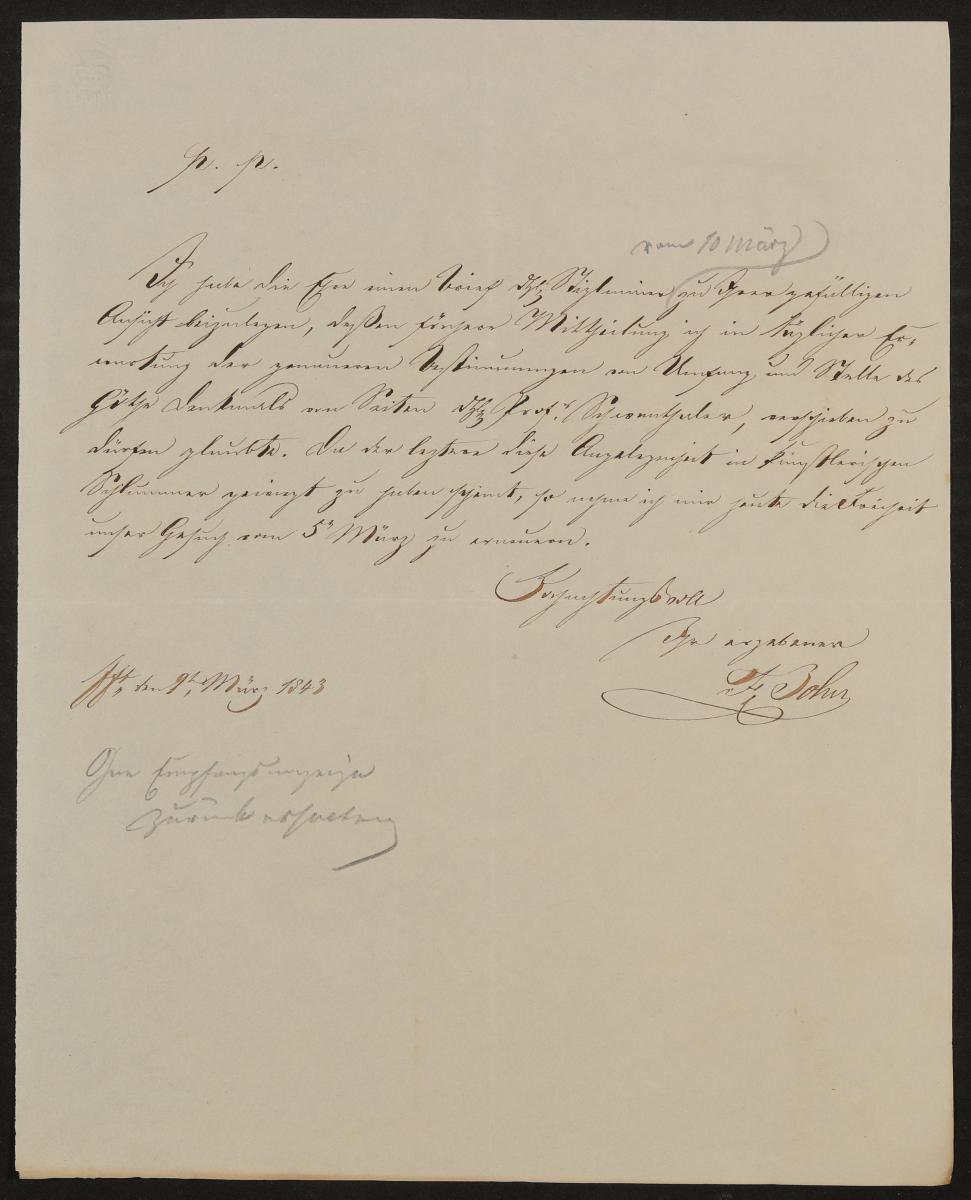 p. p.
vom 10 März
Ich habe die Ehre einen Brief Stiglmeier zu Ihrer gefälligen
Ansicht beizulegen, deßen frühere Mittheilung ich in täglicher Er-
wartung der genaueren Bestimmungen von Umfang und Stelle des
Göthe Denkmals von Seiten Prof.r Schwanthaler, verschieben zu
dürfen glaubte. Da der leztere diese Angelegenheit in künstlerischen
Schlummer gewiegt zu haben scheint, so nehme ich mir heute die Freiheit
unser Gesuch vom 5n März zu erneuern.
Hochachtungsvoll
Ihr ergebener
Fft den 9t März 1843
Ohne Empfangsanzeige
zurück erhalten